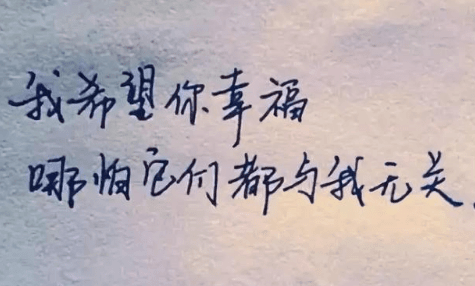 我希望你幸福
哪怕它们都与我无关.